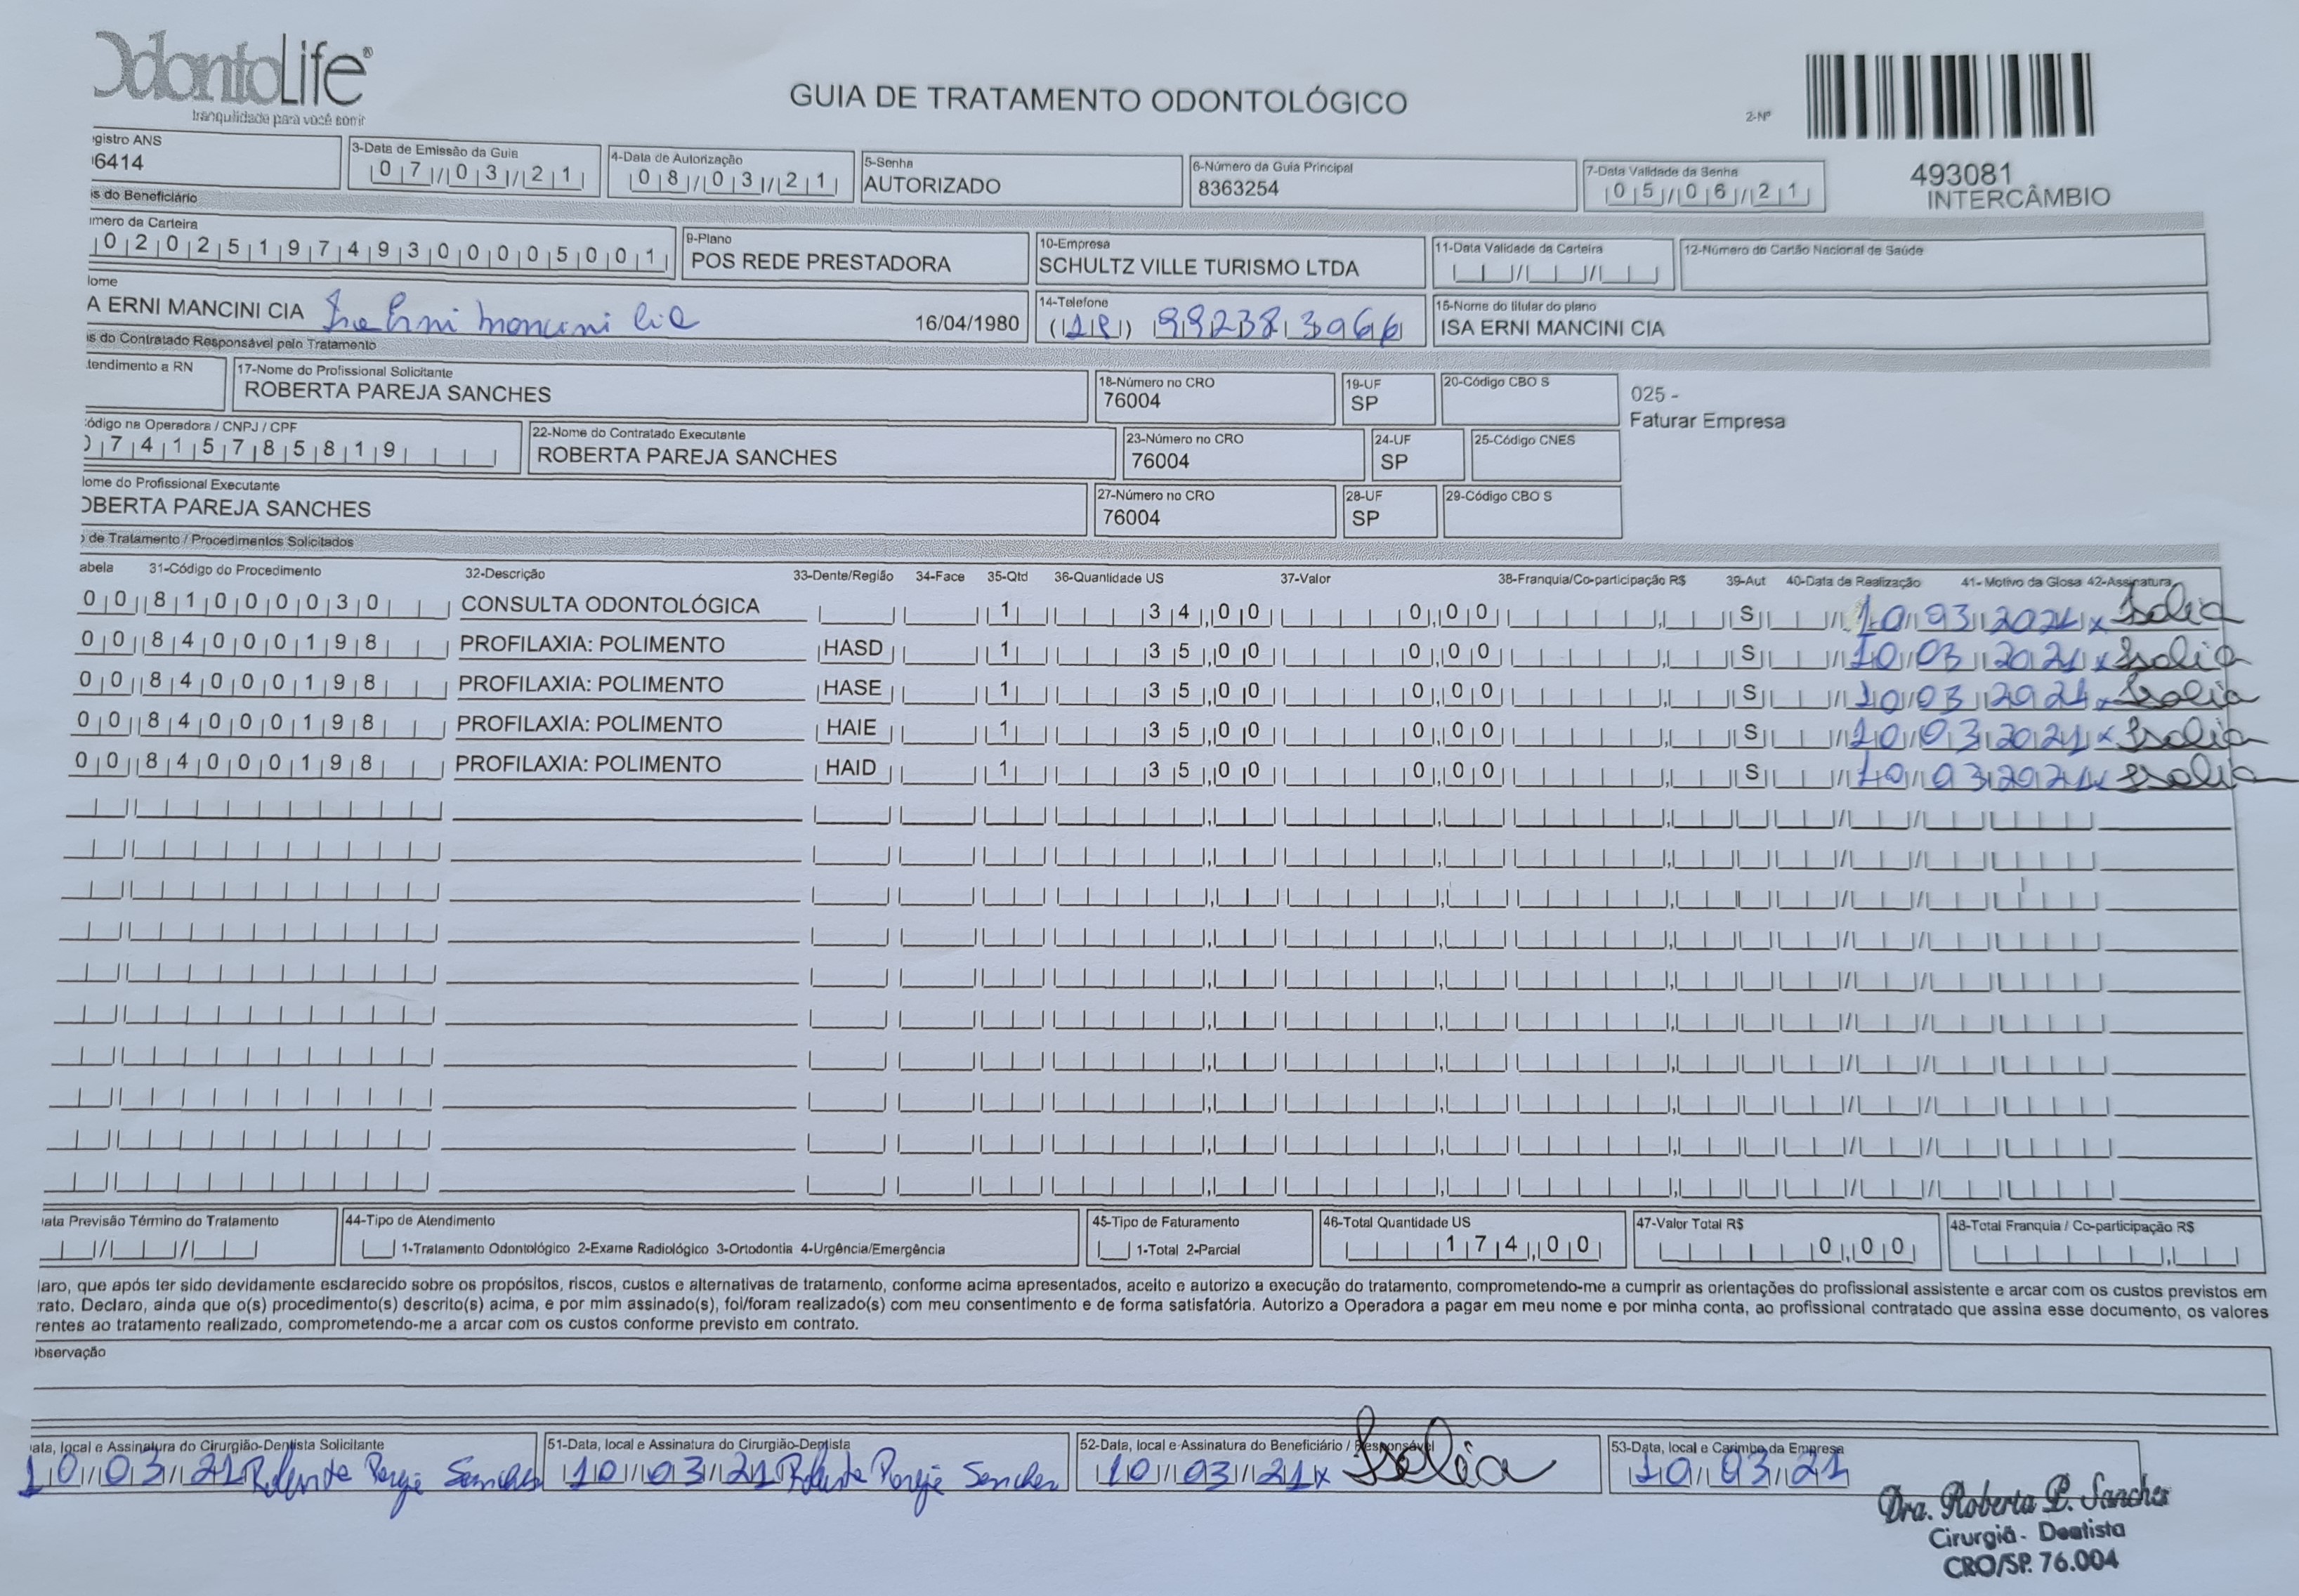 OdontoLife®
tranquilidade para você sorrir
GUIA DE TRATAMENTO ODONTOLÓGICO
2-Nº
493081
INTERCÂMBIO
gistro ANS
6414
3-Data de Emissão da Guia
07/03/21
4-Data de Autorização
08/03/21
5-Senha
AUTORIZADO
6-Número da Guia Principal
8363254
7-Data Validade da Senha
05/06/21
s do Beneficiário
mero da Carteira
0202519749300005001
9-Plano
POS REDE PRESTADORA
10-Empresa
SCHULTZ VILLE TURISMO LTDA
11-Data Validade da Carteira
12-Número do Cartão Nacional de Saúde
lome
A ERNI MANCINI CIA Isa Erni Mancini Cia 16/04/1980
14-Telefone
15-Nome do titular do plano
ISA ERNI MANCINI CIA
is do Contratado Responsável pelo Tratamento
tendimento a RN
17-Nome do Profissional Solicitante
ROBERTA PAREJA SANCHES
18-Número no CRO
76004
19-UF
SP
20-Código CBO S
025 -
Faturar Empresa
ódigo na Operadora / CNPJ / CPF
07415785819
22-Nome do Contratado Executante
ROBERTA PAREJA SANCHES
23-Número no CRO
76004
24-UF
SP
25-Código CNES
lome do Profissional Executante
OBERTA PAREJA SANCHES
27-Número no CRO
76004
28-UF
SP
29-Código CBO S
o de Tratamento / Procedimentos Solicitados
abela 31-Código do Procedimento 32-Descrição 33-Dente/Região 34-Face 35-Qtd 36-Quantidade US 37-Valor 38-Franquia/Co-participação R$ 39-Aut 40-Data de Realização 41- Motivo da Glosa 42-Assinatura
00 81000030 CONSULTA ODONTOLÓGICA 1 34,00 0,00 S 10 03 2021 x Isa Cia
00 84000198 PROFILAXIA: POLIMENTO HASD 1 35,00 0,00 S 10 03 2021 x Isa Cia
00 84000198 PROFILAXIA: POLIMENTO HASE 1 35,00 0,00 S 10 03 2021 x Isa Cia
00 84000198 PROFILAXIA: POLIMENTO HAIE 1 35,00 0,00 S 10 03 2021 x Isa Cia
00 84000198 PROFILAXIA: POLIMENTO HAID 1 35,00 0,00 S 10 03 2021 x Isa Cia
ata Previsão Término do Tratamento
44-Tipo de Atendimento
1-Tratamento Odontológico 2-Exame Radiológico 3-Ortodontia 4-Urgência/Emergência
45-Tipo de Faturamento
1-Total 2-Parcial
46-Total Quantidade US
174,00
47-Valor Total R$
0,00
48-Total Franquia / Co-participação R$
laro, que após ter sido devidamente esclarecido sobre os propósitos, riscos, custos e alternativas de tratamento, conforme acima apresentados, aceito e autorizo a execução do tratamento, comprometendo-me a cumprir as orientações do profissional assistente e arcar com os custos previstos em
rato. Declaro, ainda que o(s) procedimento(s) descrito(s) acima, e por mim assinado(s), foi/foram realizado(s) com meu consentimento e de forma satisfatória. Autorizo a Operadora a pagar em meu nome e por minha conta, ao profissional contratado que assina esse documento, os valores
rentes ao tratamento realizado, comprometendo-me a arcar com os custos conforme previsto em contrato.
bservação
ata, local e Assinatura do Cirurgião-Dentista Solicitante
10/03/21 Roberta Pareja Sanches
51-Data, local e Assinatura do Cirurgião-Dentista
10/03/21 Roberta Pareja Sanches
52-Data, local e Assinatura do Beneficiário / Responsável
10/03/21 x Isa Cia
53-Data, local e Carimbo da Empresa
10/03/21
Dra. Roberta P. Sanches
Cirurgiã - Dentista
CRO/SP. 76.004